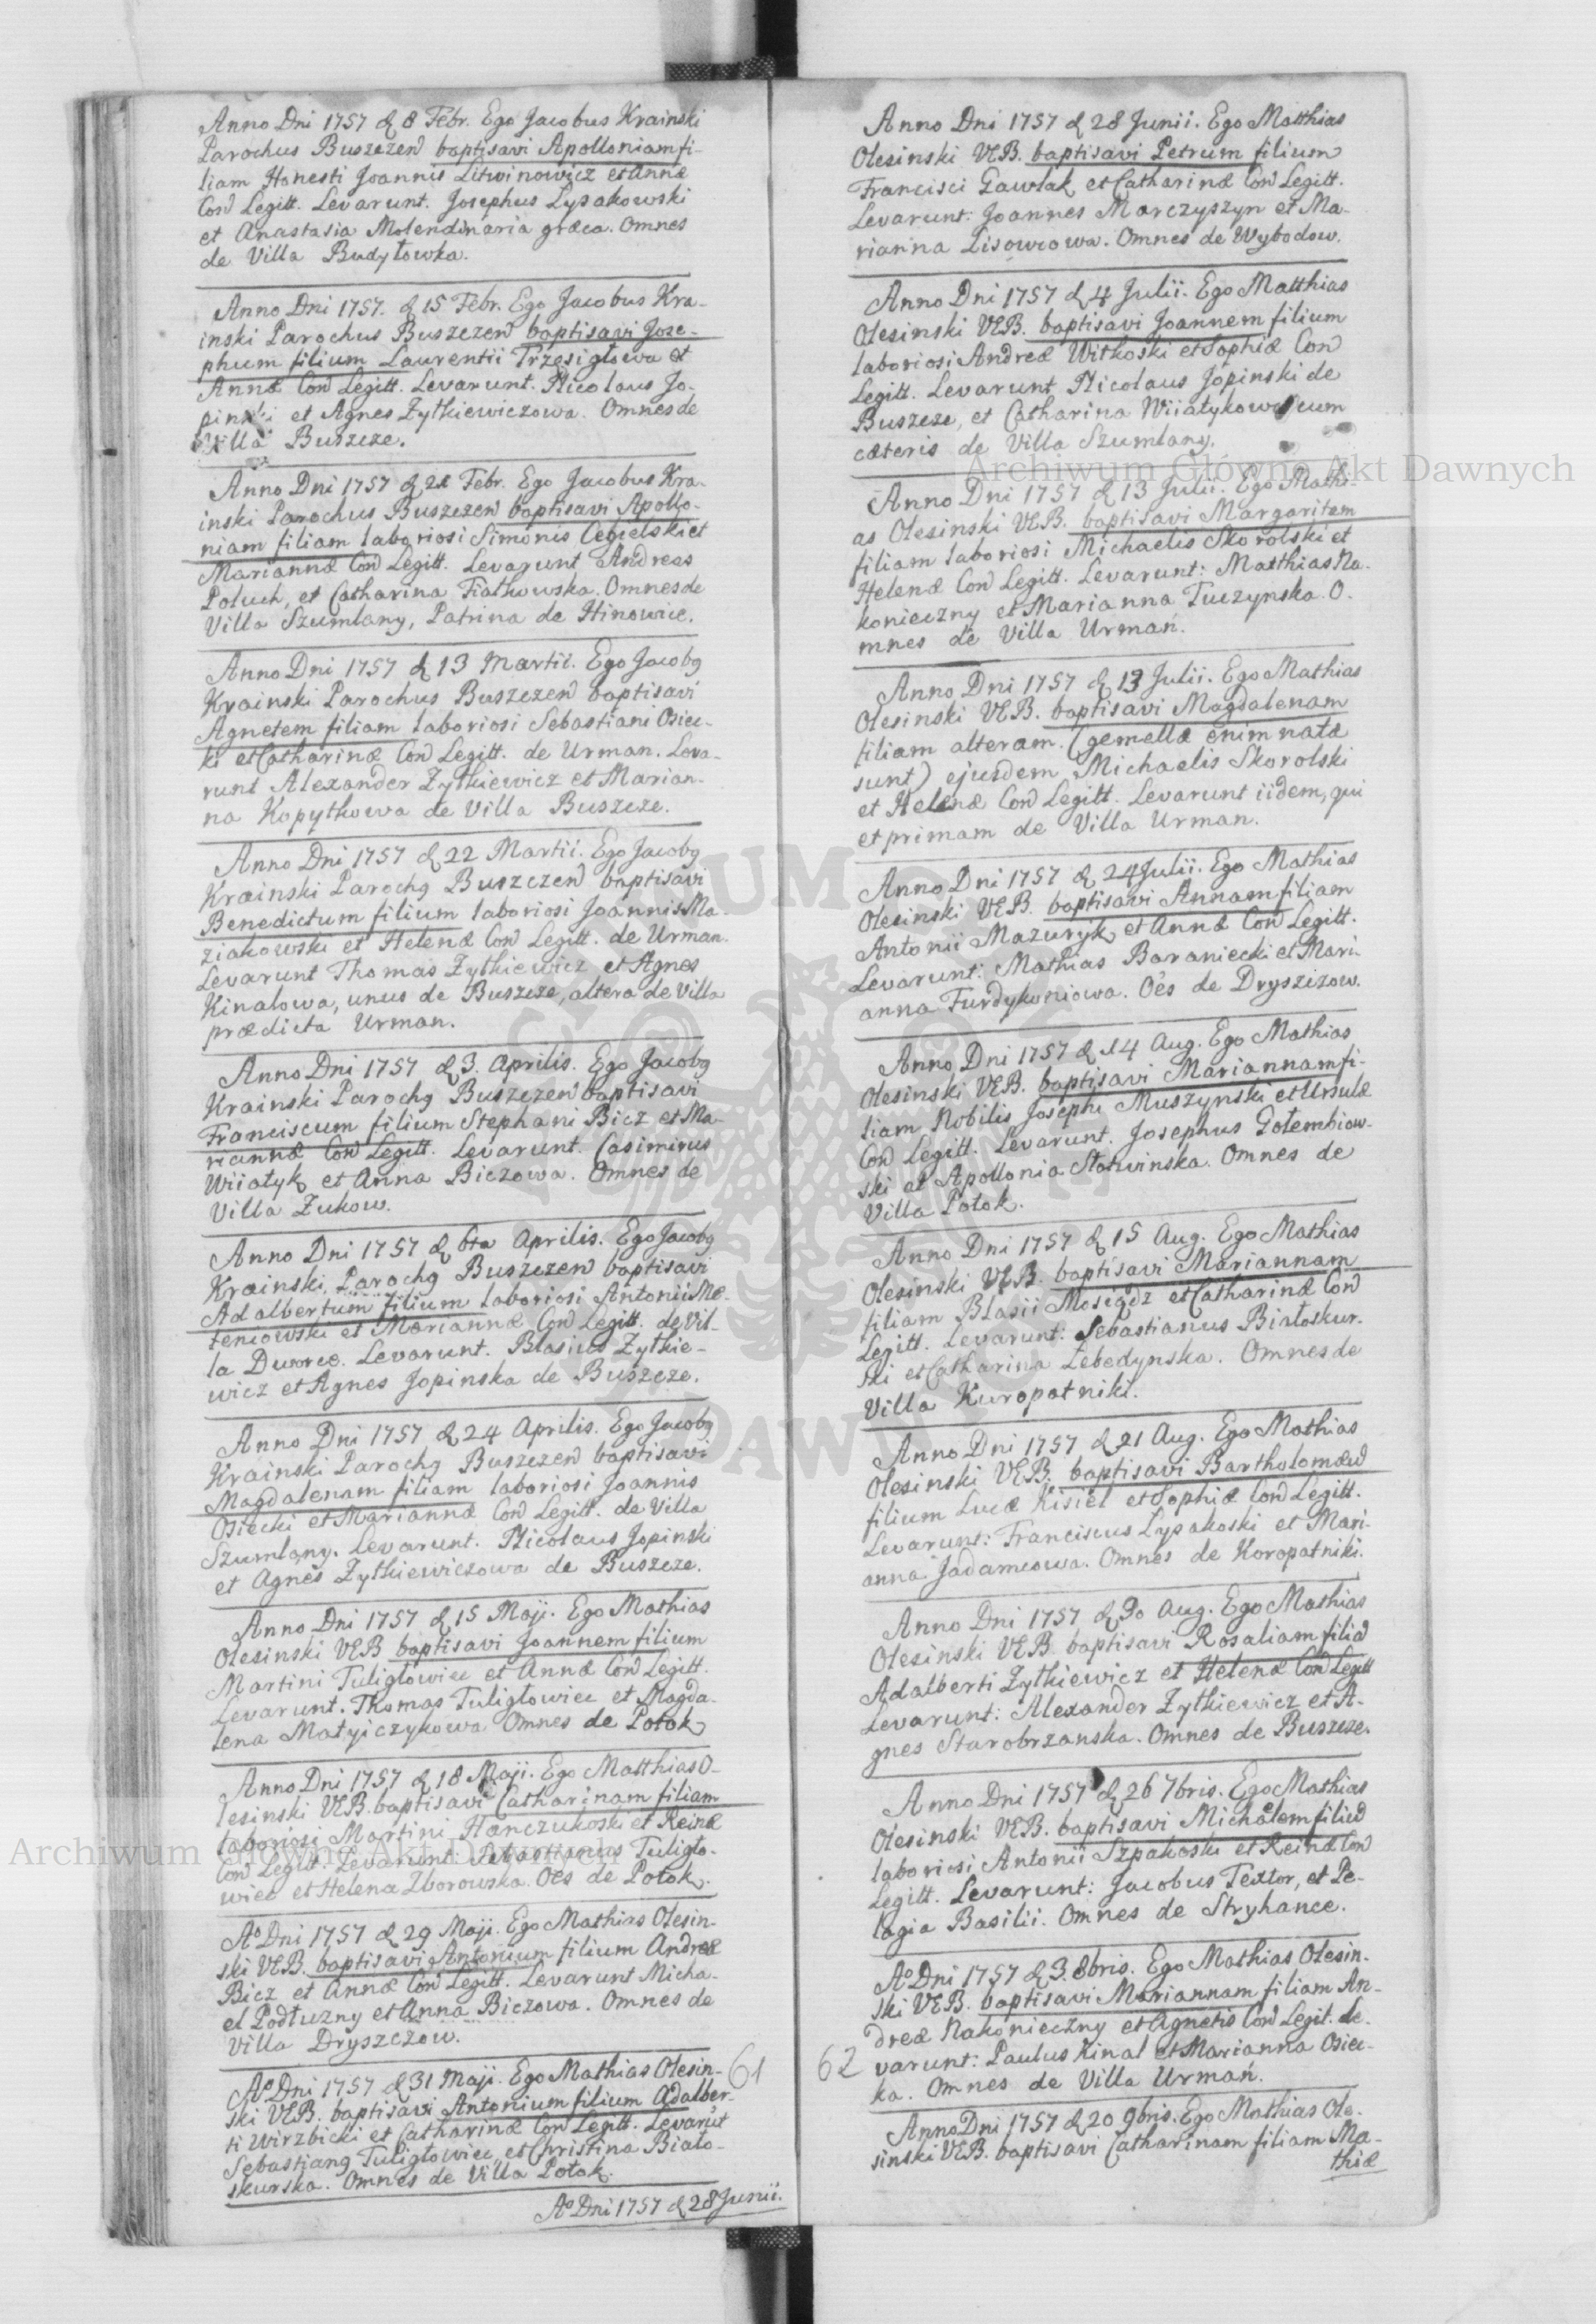 Anno Dni 1757 d 8 Febr. Ego Jacobus Krainski
Parochus Buszczen baptisavi Apolloniam fi-
liam Honesti Joannis Litwinowicz et Annæ
Con Legitt. Levarunt. Josephus Lysakowski
et Anastasia Molendinaria græca. Omnes
de Villa Budyłowka.
Anno Dni 1757. d 15 Febr. Ego Jacobus Kra-
inski Parochus Buszczen baptisavi Jose-
phum filium Laurentii Przesigłowa et
Annæ Con Legitt. Levarunt. Nicolaus Jo-
pinski et Agnes Zytkiewiczowa. Omnes de
Villa Buszcze.
Anno Dni 1757 d 21 Febr. Ego Jacobus Kra-
inski Parochus Buszczen baptisavi Apollo-
niam filiam laboriosi Simonis Cegielski et
Mariannæ Con Legitt. Levarunt Andreas
Poluch, et Catharina Fiałkowska. Omnes de
Villa Szumlany, Patrina de Hinowice.
Anno Dni 1757 d 13 Martii. Ego Jacobg
Krainski Parochus Buszczen baptisavi
Agnetem filiam laboriosi Sebastiani Osiec-
ki et Catharinæ Con Legitt. de Urman. Leva-
runt Alexander Zytkiewicz et Marian-
na Kopytkowa de Villa Buszcze.
Anno Dni 1757 d 22 Martii. Ego Jacobg
Krainski Parochg Buszczen baptisavi
Benedictum filium laboriosi Joannis Ma-
ziakowski et Helenæ Con Legitt. de Urman.
Levarunt Thomas Zytkiewicz et Agnes
Kinalowa, unus de Buszcze, altera de Villa
prædicta Urman.
Anno Dni 1757 d 3. Aprilis. Ego Jacobg
Krainski Parochg Buszczen baptisavi
Franciscum filium Stephani Bicz et Ma-
riannæ Con Legitt. Levarunt. Casimirus
Wiiatyk et Anna Biczowa. Omnes de
Villa Zukow.
Anno Dni 1757 d 6ta Aprilis. Ego Jacobg
Krainski, Parochg Buszczen baptisavi
Adalbertum filium laboriosi Antonii Me-
teniowski et Mariannæ Con Legitt. de Vil-
la Dworce. Levarunt. Blasius Zytkie-
wicz et Agnes Jopinska de Buszcze.
Anno Dni 1757 d 24 Aprilis. Ego Jacobg
Krainski Parochg Buszczen baptisavi
Magdalenam filiam laboriosi Joannis
Osiecki et Mariannæ Con Legitt. de Villa
Szumlany. Levarunt. Nicolaus Jopinski
et Agnes Zytkiewiczowa de Buszcze.
Anno Dni 1757 d 15 Maji. Ego Mathias
Olesinski VEB baptisavi Joannem filium
Martini Tuligłowiec et Annæ Con Legitt.
Levarunt. Thomas Tuligłowiec et Magda-
lena Matyiczykowa Omnes de Potok
Anno Dni 1757 d 18 Maji. Ego Matthias O-
lesinski VEB. baptisavi Catharinam filiam
laboriosi Martini Hanczukoski et Reinæ
Con Legitt. Levarunt: Sebastianus Tuligło-
wiec et Helena Zborowska. Oēs de Potok.
Ao Dni 1757 d 29 Maji. Ego Mathias Olesin-
ski VEB. baptisavi Antonium filium Andreæ
Bicz et Annæ Con Legitt. Levarunt Micha-
el Podłuzny et Anna Biczowa. Omnes de
Villa Dryszczow.
Ao Dni 1757 d 31 Maji. Ego Mathias Olesin-
ski VEB. baptisavi Antonium filium Adalber-
ti Wirzbicki et Catharinæ Con Legitt. Levarūt
Sebastiang Tuligłowiec, et Christina Biało-
skurska. Omnes de Villa Potok.
Ao Dni 1757 d 28 Junii.
61
Anno Dni 1757 d 28 Junii. Ego Matthias
Olesinski VEB. baptisavi Petrum filium
Francisci Gawlak et Catharinæ Con Legitt.
Levarunt: Joannes Marczyszyn et Ma-
rianna Lisowcowa. Omnes de Wybodow.
Anno Dni 1757 d 4 Julii. Ego Matthias
Olesinski VEB. baptisavi Joannem filium
laboriosi Andreæ Witkoski et Sophiæ Con
Legitt. Levarunt Nicolaus Jopinski de
Buszcze, et Catharina Wiiatykowa cum
cæteris de Villa Szumlany.
Anno Dni 1757 d 13 Julii. Ego Mathi-
as Olesinski VEB. baptisavi Margaritam
filiam laboriosi Michaelis Skorolski et
Helenæ Con Legitt. Levarunt: Matthias Na-
konieczny et Marianna Tuczynska. O-
mnes de Villa Urmań.
Anno Dni 1757 d 13 Julii. Ego Mathias
Olesinski VEB. baptisavi Magdalenam
filiam alteram. (gemellæ enim natæ
sunt) ejusdem Michaelis Skorolski
et Helenæ Con Legitt. Levarunt iidem, qui
et primam de Villa Urman.
Anno Dni 1757 d 24 Julii. Ego Mathias
Olesinski VEB. baptisavi Annam filiam
Antonii Mazuryk et Annæ Con Legitt.
Levarunt: Mathias Baraniecki et Mari-
anna Furdykoniowa. Oēs de Dryszizow.
Anno Dni 1757 d 14 Aug. Ego Mathias
Olesinski VEB. baptisavi Mariannam fi-
liam Nobilis Josephi Muszynski et Ursulæ
Con Legitt. Levarunt. Josephus Gołembiow-
ski et Apollonia Słotwinska. Omnes de
Villa Potok.
Anno Dni 1757 d 15 Aug. Ego Mathias
Olesinski VEB. baptisavi Mariannam
filiam Blasii Mosiądz et Catharinæ Con
Legitt. Levarunt: Sebastianus Białoskur-
ski et Catharina Lebedynska. Omnes de
Villa Kuropatniki.
Anno Dni 1757 d 21 Aug. Ego Mathias
Olesinski VEB. baptisavi Bartholomæū
filium Lucæ Kisiel et Sophiæ Con Legitt.
Levarunt: Franciscus Lysakoski et Mari-
anna Jadamcowa. Omnes de Koropatniki.
Anno Dni 1757 d 30 Aug. Ego Mathias
Olesinski VEB. baptisavi Rosaliam filiā
Adalberti Zytkiewicz et Helenæ Con Legitt
Levarunt: Alexander Zytkiewicz et A-
gnes Starobrzanska. Omnes de Buszcze.
Anno Dni 1757 d 26 7bris. Ego Mathias
Olesinski VEB. baptisavi Michælem filiū
laboriosi Antonii Szpakoski et Reinæ Con
Legitt. Levarunt: Jacobus Textor, et Pe-
lagia Basilii. Omnes de Stryhance.
Ao Dni 1757 d 3. 8bris. Ego Mathias Olesin-
ski VEB. baptisavi Mariannam filiam An-
dreæ Nakonieczny et Agnetis Con Legit. Le-
varunt: Paulus Kinal et Marianna Osiec-
ka. Omnes de Villa Urmań.
62
Anno Dni 1757 d 20 9bris. Ego Mathias Ole-
sinski VEB. baptisavi Catharinam filiam Ma-
thiæ
Archiwum Główne Akt Dawnych
Archiwum Główne Akt Dawnych